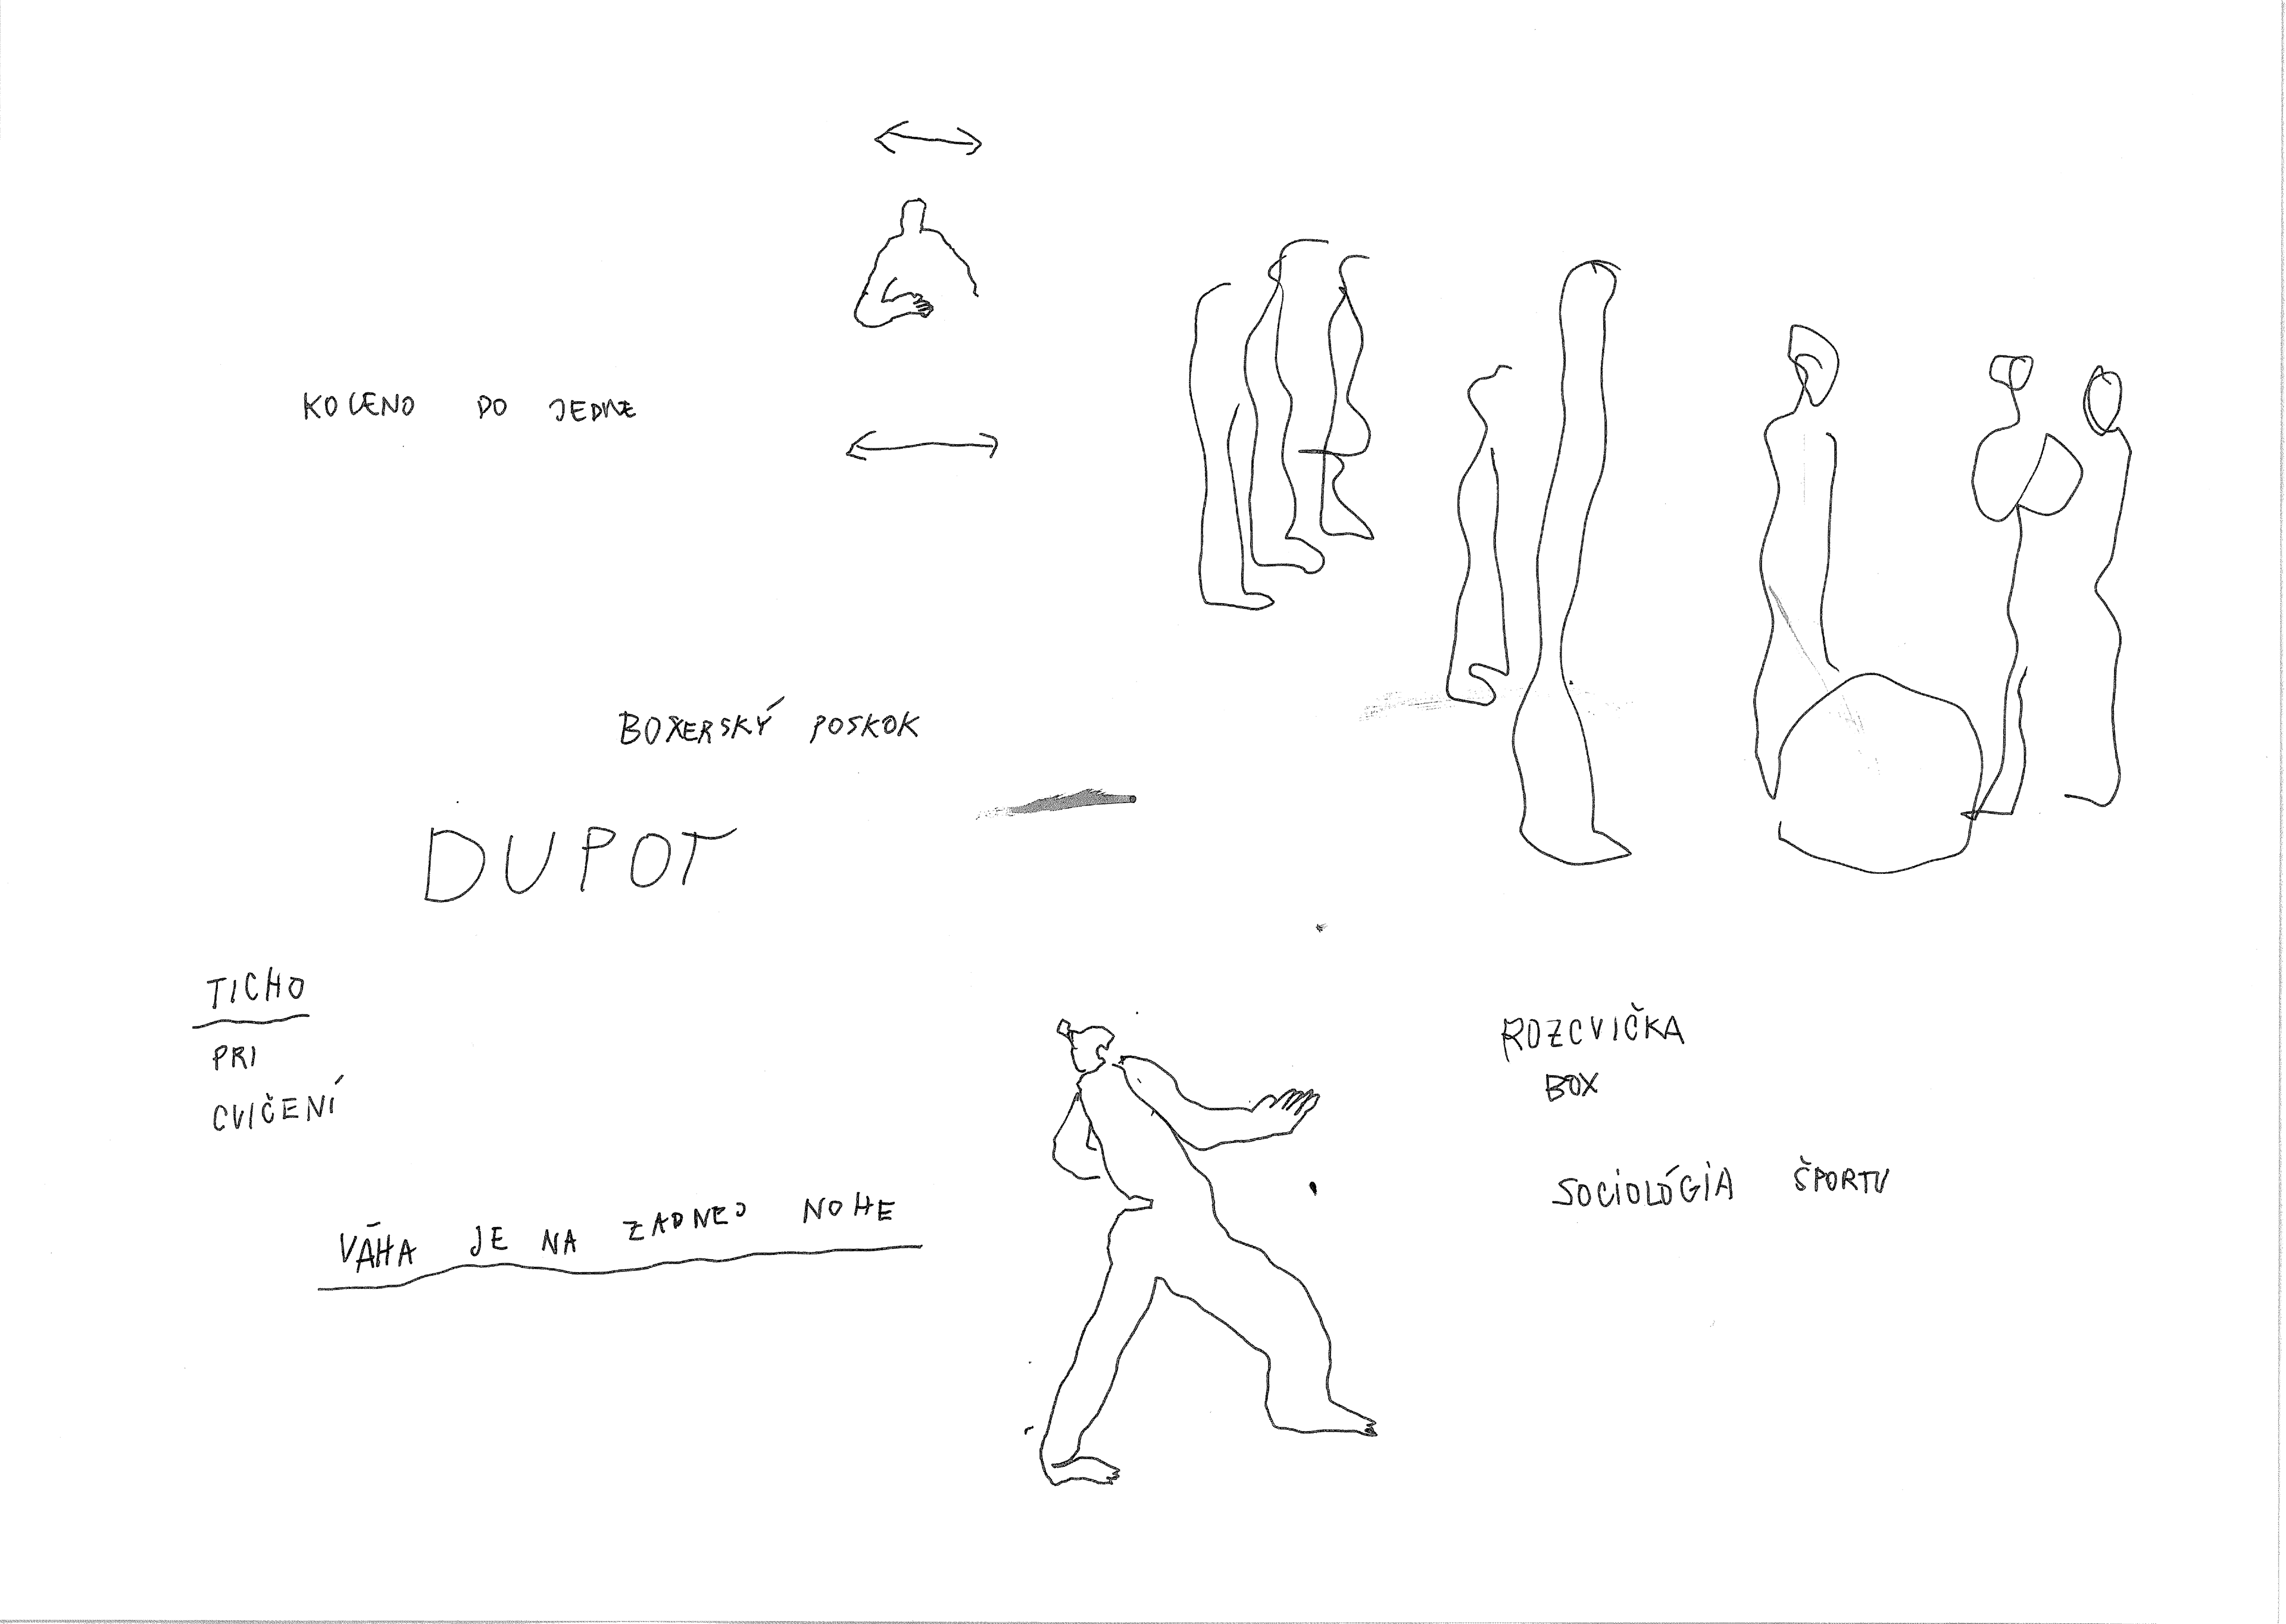 KOLENO DO JEDNE
BOXERSKÝ POSKOK
DUPOT
TICHO
PRI
CVIČENÍ
VÁHA JE NA ZADNEJ NOHE
ROZCVIČKA
BOX
SOCIOLÓGIA ŠPORTU